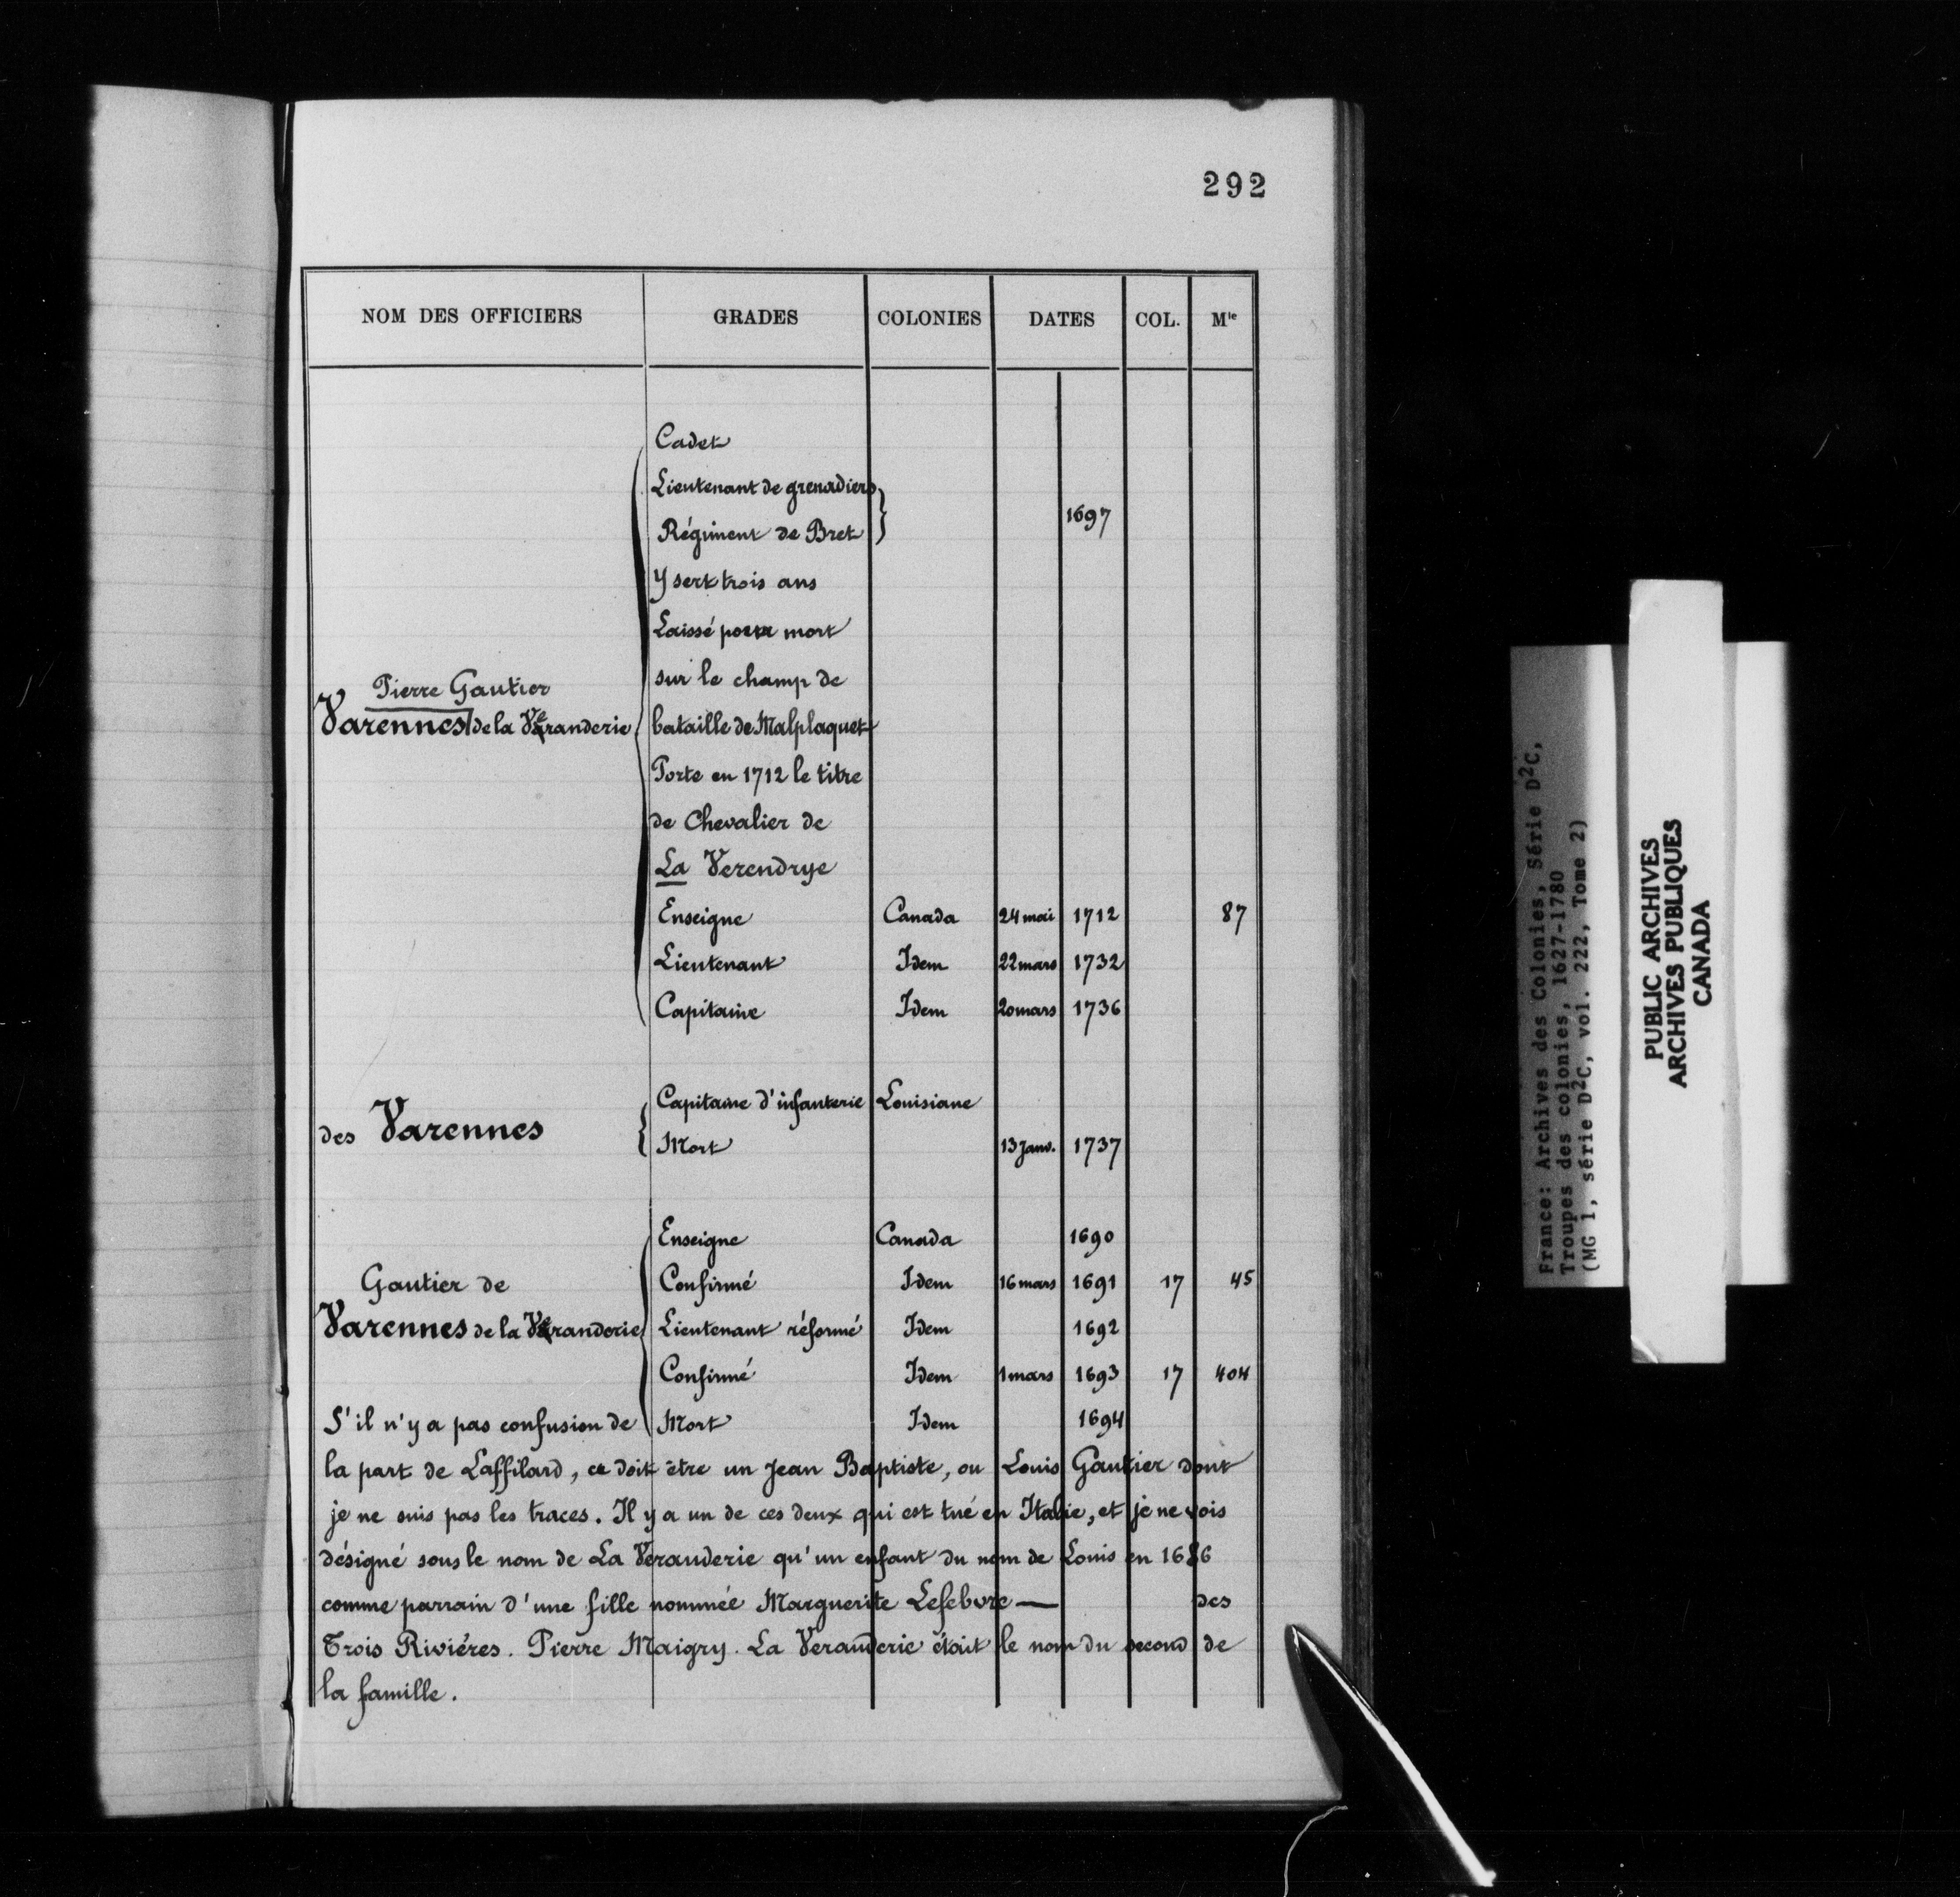 292
NOM DES OFFICIERS GRADES COLONIES DATES COL. Mle
Cadet
Lieutenant de grenadiers
1697
Régiment de Bret
Y sert trois ans
Laissé pour mort
sur le champ de
Pierre Gautier
Varennes de la Véranderie bataille de Malplaquet
Porte en 1712 le titre
de Chevalier de
La Verendrye
Enseigne Canada 24 mai 1712 87
Lieutenant Idem 22 mars 1732
Capitaine Idem 20 mars 1736
Capitaine d'infanterie Louisiane
des Varennes
Mort 13 Janv. 1737
Enseigne Canada 1690
Gautier de Confirmé Idem 16 mars 1691 17 45
Varennes de la Véranderie Lieutenant réformé Idem 1692
Confirmé Idem 1 mars 1693 17 404
S'il n'y a pas confusion de Mort Idem 1694
la part de Laffilard, ce doit être un Jean Baptiste, ou Louis Gautier dont
je ne suis pas les traces. Il y a un de ces deux qui est tué en Italie, et je ne vois
désigné sous le nom de La Veranderie qu'un enfant du nom de Louis en 1686
comme parrain d'une fille nommée Marguerite Lefebvre — des
Trois Riviéres. Pierre Maigry. La Veranderie était le nom du second de
la famille.
France: Archives des Colonies, Série D²C,
Troupes des colonies, 1627-1780
(MG 1, série D²C, vol. 222, Tome 2)
PUBLIC ARCHIVES
ARCHIVES PUBLIQUES
CANADA